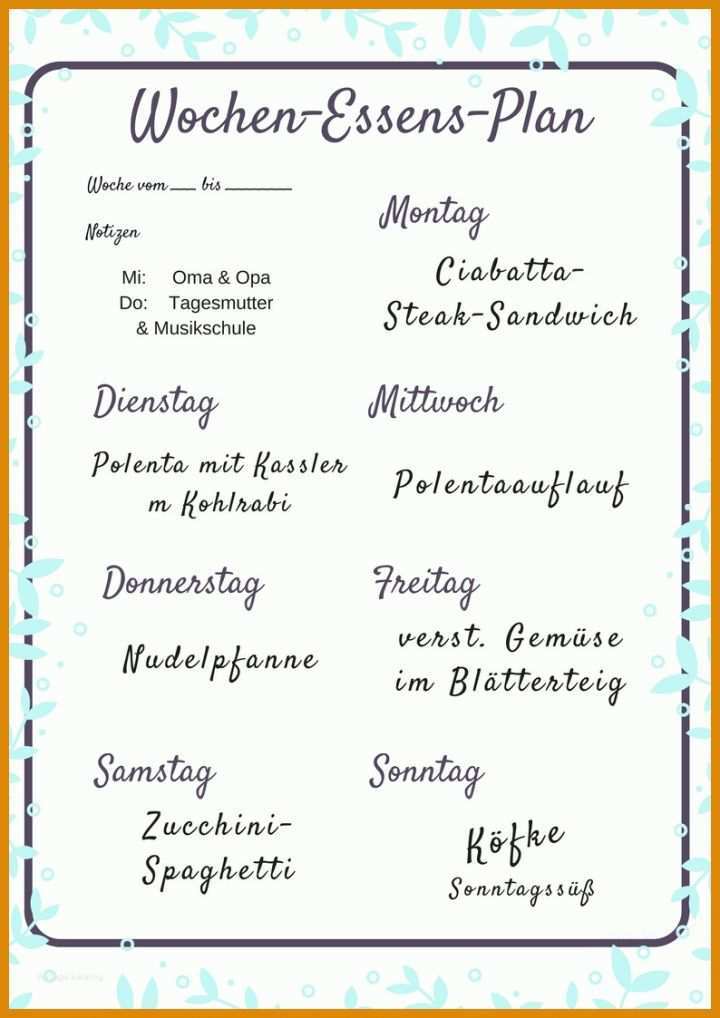 Wochen-Essens-Plan
Woche vom ___ bis ________
Notizen
Mi: Oma & Opa
Do: Tagesmutter
& Musikschule
Montag
Ciabatta-
Steak-Sandwich
Dienstag
Polenta mit Kassler
m Kohlrabi
Mittwoch
Polentaauflauf
Donnerstag
Nudelpfanne
Freitag
verst. Gemüse
im Blätterteig
Samstag
Zucchini-
Spaghetti
Sonntag
Köfke
Sonntagssüß